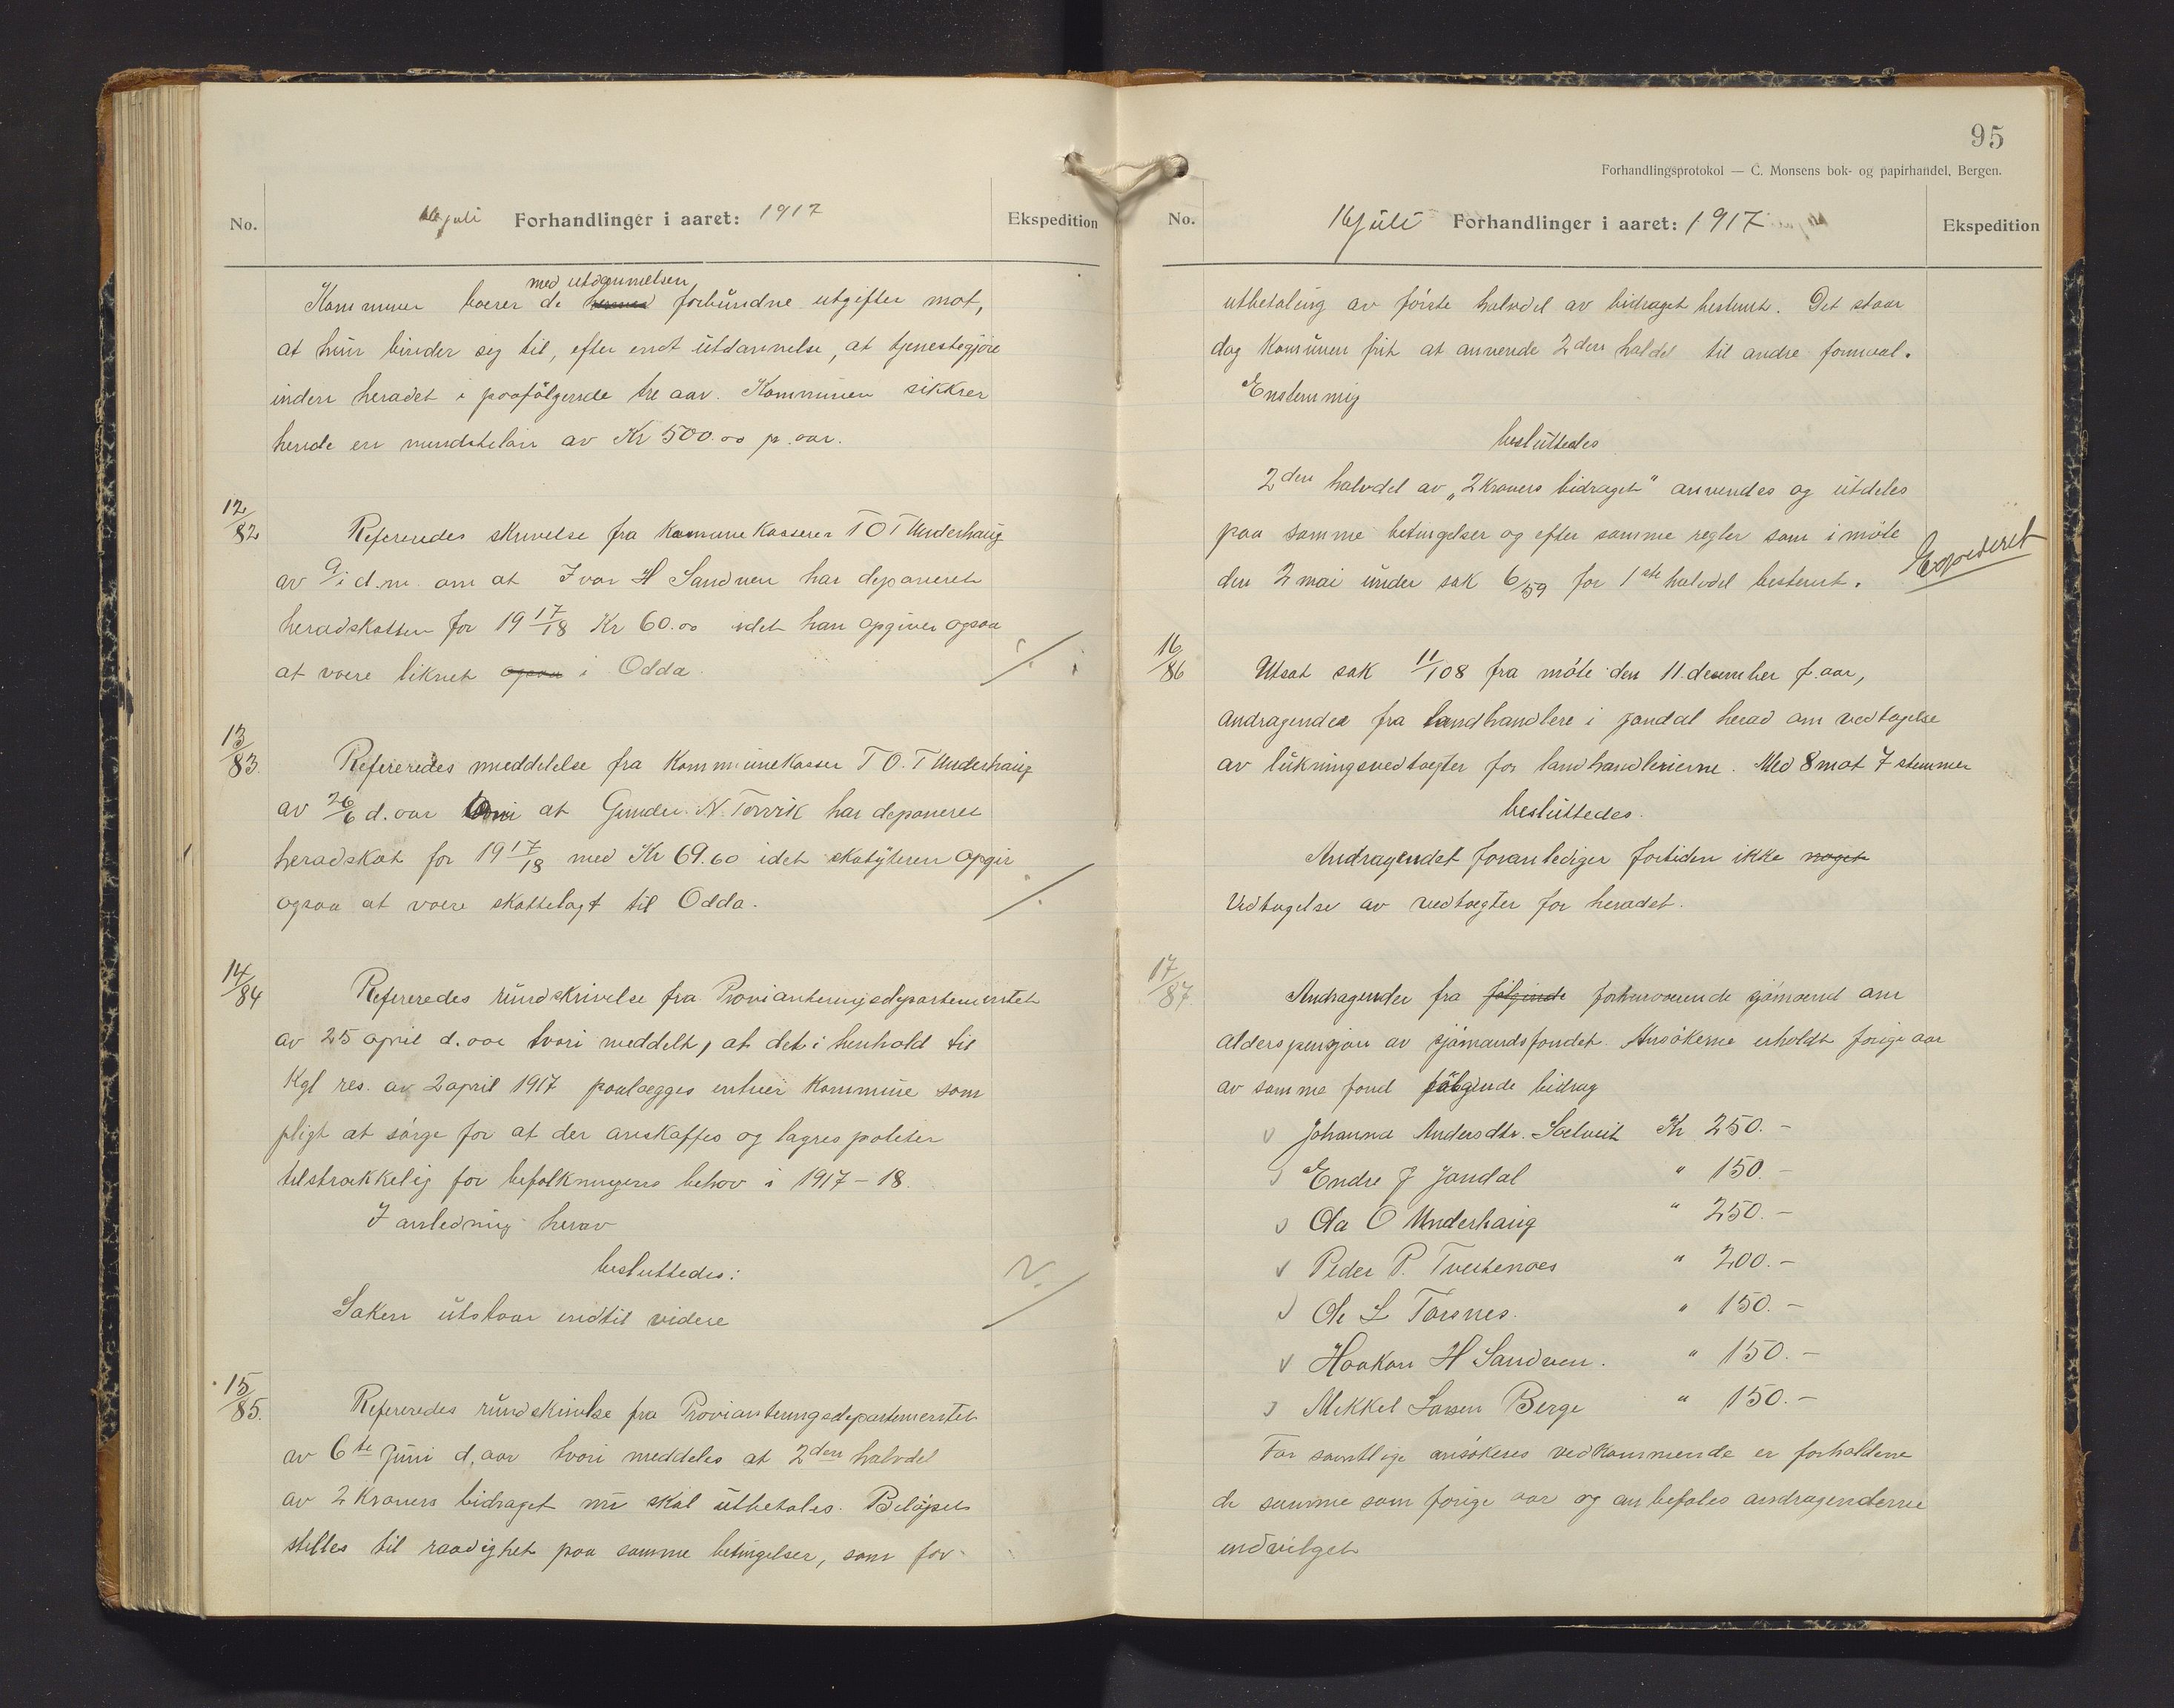 No.
16 juli Forhandlinger i aaret: 1917
Ekspedition
med utdannelsen
Kommunen bærer de forbundne utgifter mot,
at hun binder sig til, efter endt utdannelse, at tjenestegjöre
inden heradet i paafölgende tre aar. Kommunen sikkrer
hende en mindstelön av Kr 500.00 p. aar.
12/82
Refereredes skrivelse fra Kommunekasserer T O T Underhaug
av 9/7 d.m. om at Ivar H Sandven har deponeret
heradskatten for 1917/18 Kr 60.00 idet han opgiver ogsaa
at være liknet ogsaa i Odda.
13/83.
Refereredes meddelelse fra Kommunekasser T O. T Underhaug
av 26/6 d. aar om at Gunder N. Torvik har deponeret
heradskat for 1917/18 med Kr 69.60 idet skatyteren opgir
ogsaa at være skattelagt til Odda.
14/84
Refereredes rundskrivelse fra Provianteringsdepartementet
av 25 april d. aar hvori meddelt, at det i henhold til
Kgl res. av 2 april 1917 paalægges enhver Kommune som
pligt at sörge for at der anskaffes og lagres poteter
tilstrækkelig for befolkningens behov i 1917-18.
I anledning herav
besluttedes:
Saken utstaar indtil videre
15/85.
Refereredes rundskrivelse fra Provianteringsdepartementet
av 6te Juni d. aar hvori meddeles at 2den halvdel
av 2 Kroners bidraget nu skal utbetales. Belöpet
stilles til raadighet paa samme betingelser, som for
95
Forhandlingsprotokol — C. Monsens bok- og papirhandel, Bergen.
No.
16 juli Forhandlinger i aaret: 1917
Ekspedition
utbetaling av förste halvdel av bidraget bestemt. Det staar
dog Komunen frit at anvende 2den haldel til andre formaal.
Enstemmig
besluttedes
2den halvdel av „2 Kroners bidraget" anvendes og utdeles
paa samme betingelser og efter samme regler som i möte
den 2 mai under sak 6/59 for 1ste halvdel bestemt.
Expederet
16/86
Utsat sak 11/108 fra möte den 11. december f. aar,
andragender fra landhandlere i Jondal herad om vedtagelse
av lukningsvedtægter for landhandlerierne. Med 8 mot 7 stemmer
besluttedes.
Andragendet foranlediger fortiden ikke noget
Vedtagelse av vedtægter for heradet.
17/87.
Andragender fra fölgende forhenværende sjömænd om
alderspensjon av sjömandsfondet. Ansökerne erholdt forige aar
av samme fond fölgende bidrag
Johanna Andersdtr. Sælveit Kr 250.-
Endre J Jondal " 150.-
Ola O Underhaug " 250.-
Peder P. Tveitenæs " 200.-
Ole L Torsnes. " 150.-
Haakon H Sandven. " 150.-
Mikkel Larsen Berge " 150.-
For samtlige ansökeres vedkommende er forholdene
de samme som forige aar og anbefales andragenderne
indvilget